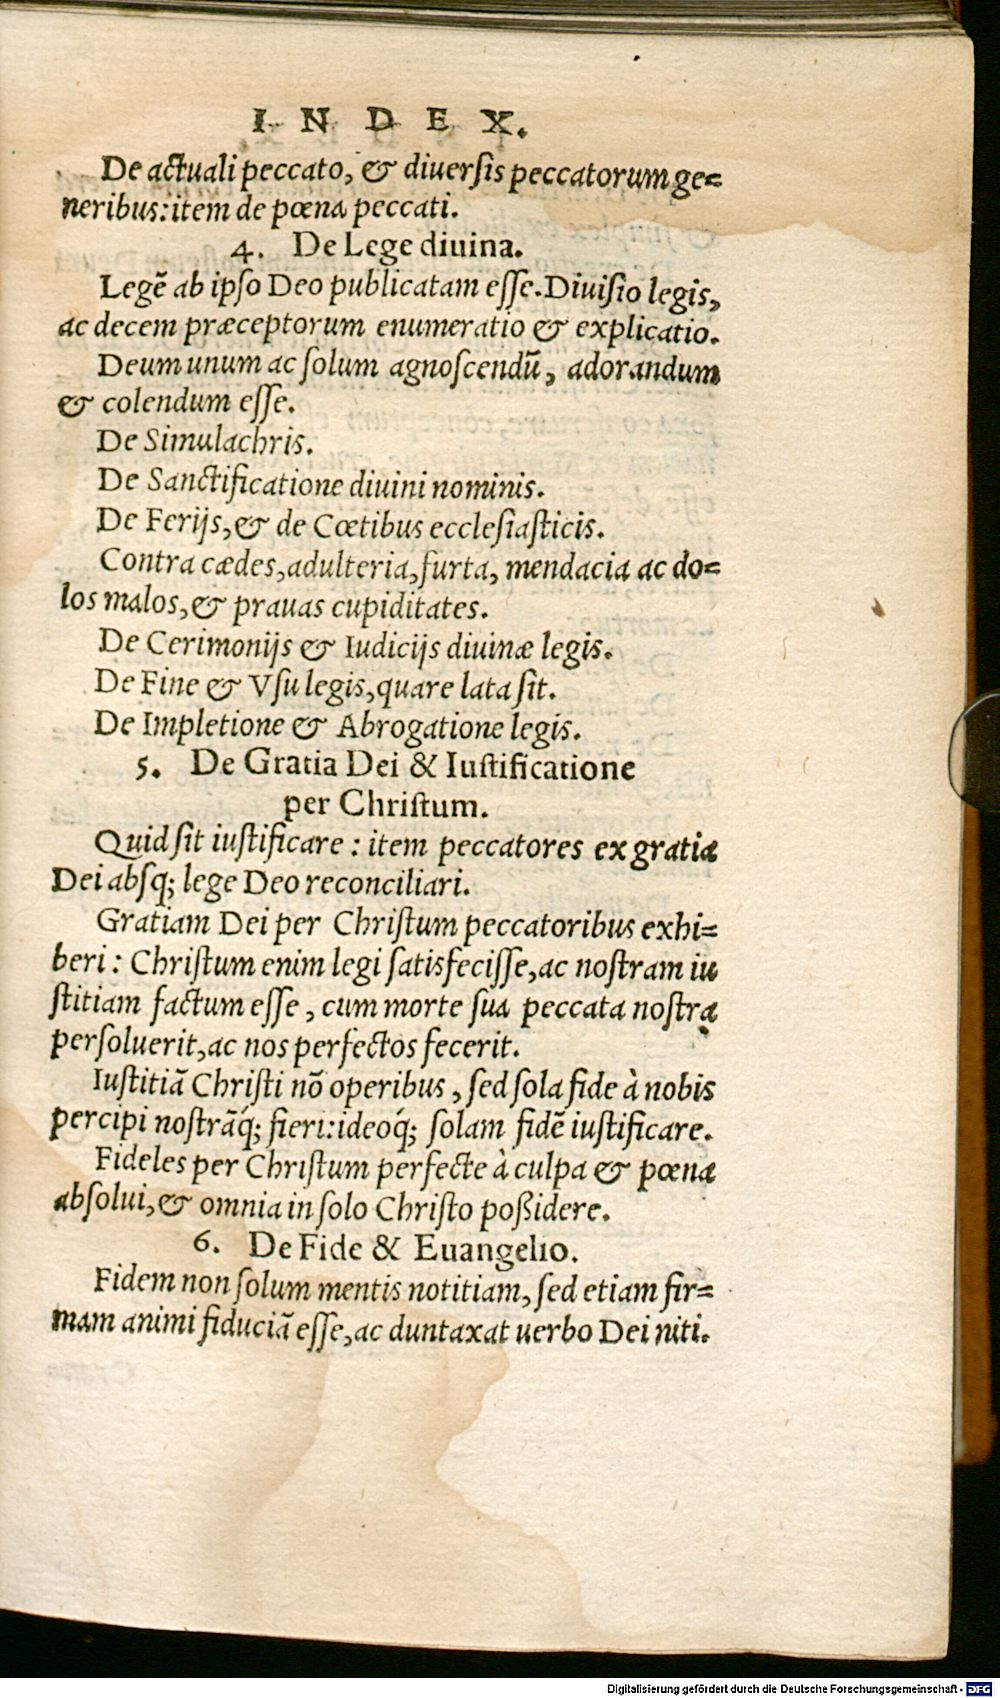 I N D E X.
De actuali peccato, & diuersis peccatorum ge=
neribus: item de pœna peccati.
4. De Lege diuina.
Legē ab ipso Deo publicatam esse. Diuisio legis,
ac decem præceptorum enumeratio & explicatio.
Deum unum ac solum agnoscendū, adorandum
& colendum esse.
De Simulachris.
De Sanctificatione diuini nominis.
De Ferijs, & de Cœtibus ecclesiasticis.
Contra cædes, adulteria, furta, mendacia ac do=
los malos, & prauas cupiditates.
De Cerimonijs & Iudicijs diuinæ legis.
De Fine & Vsu legis, quare lata sit.
De Impletione & Abrogatione legis.
5. De Gratia Dei & Iustificatione
per Christum.
Quid sit iustificare: item peccatores ex gratia
Dei absq; lege Deo reconciliari.
Gratiam Dei per Christum peccatoribus exhi=
beri: Christum enim legi satisfecisse, ac nostram iu
stitiam factum esse, cum morte sua peccata nostra
persoluerit, ac nos perfectos fecerit.
Iustitiā Christi nō operibus, sed sola fide à nobis
percipi nostrāq́; fieri: ideoq́; solam fidē iustificare.
Fideles per Christum perfecte à culpa & pœna
absolui, & omnia in solo Christo poßidere.
6. De Fide & Euangelio.
Fidem non solum mentis notitiam, sed etiam fir=
mam animi fiduciā esse, ac duntaxat uerbo Dei niti.
Digitalisierung gefördert durch die Deutsche Forschungsgemeinschaft - DFG